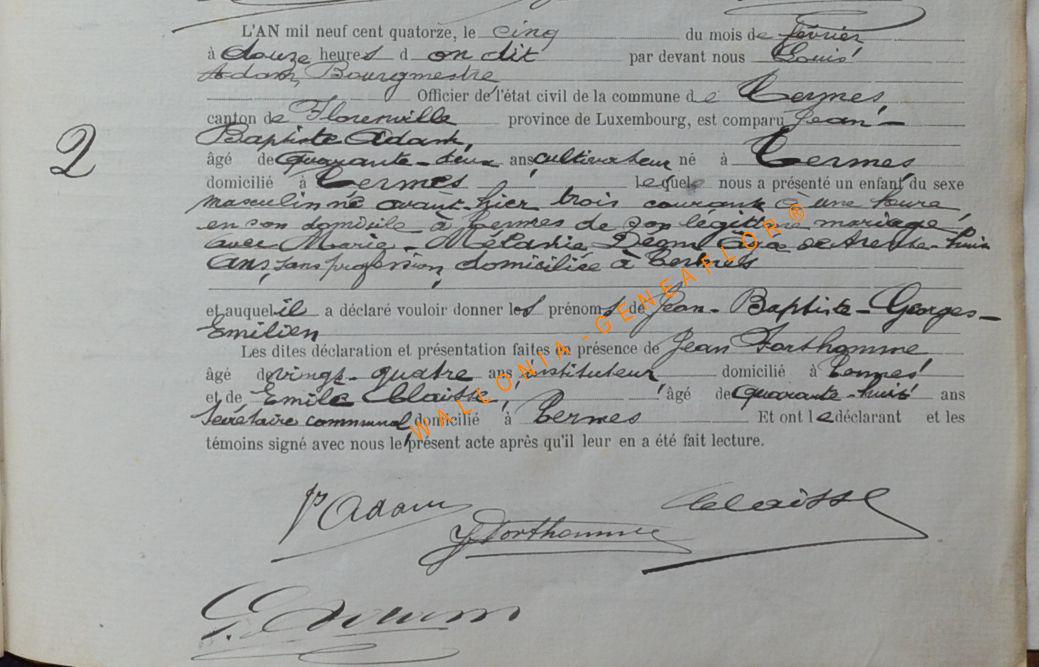 L'AN mil neuf cent quatorze, le cinq du mois de février
à douze heures d on dit par devant nous Louis
Adam, Bourgmestre
Officier de l'état civil de la commune de Termes,
canton de Florenville province de Luxembourg, est comparu Jean-
Baptiste Adam,
âgé de quarante-deux ans, cultivateur né à Termes,
domicilié à Termes lequel nous a présenté un enfant du sexe
masculin né avant-hier trois courant à une heure,
en son domicile à Termes de son légitime mariage
avec Marie-Mélanie Deom âgée de trente-huit
ans, sans profession, domiciliée à Termes
et auquel il a déclaré vouloir donner les prénoms de Jean-Baptiste-Georges-
Emilien
Les dites déclaration et présentation faites en présence de Jean Forthomme
âgé de vingt-quatre ans, instituteur domicilié à Termes
2
et de Emile Claisse, âgé de quarante-huit ans
secrétaire communal, domicilié à Termes Et ont le déclarant et les
témoins signé avec nous le présent acte après qu'il leur en a été fait lecture.
WALLONIA - GENEAFLOR ®
Adam
Claisse
J Forthomme